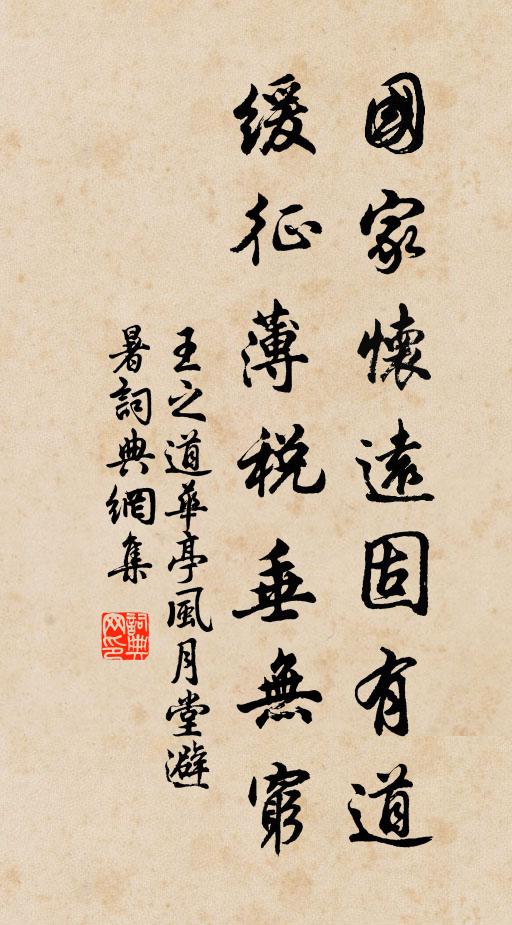 國家懷遠固有道
緩征薄稅垂無窮
王之道華亭風月堂避
暑詞典網集
詞典
网印